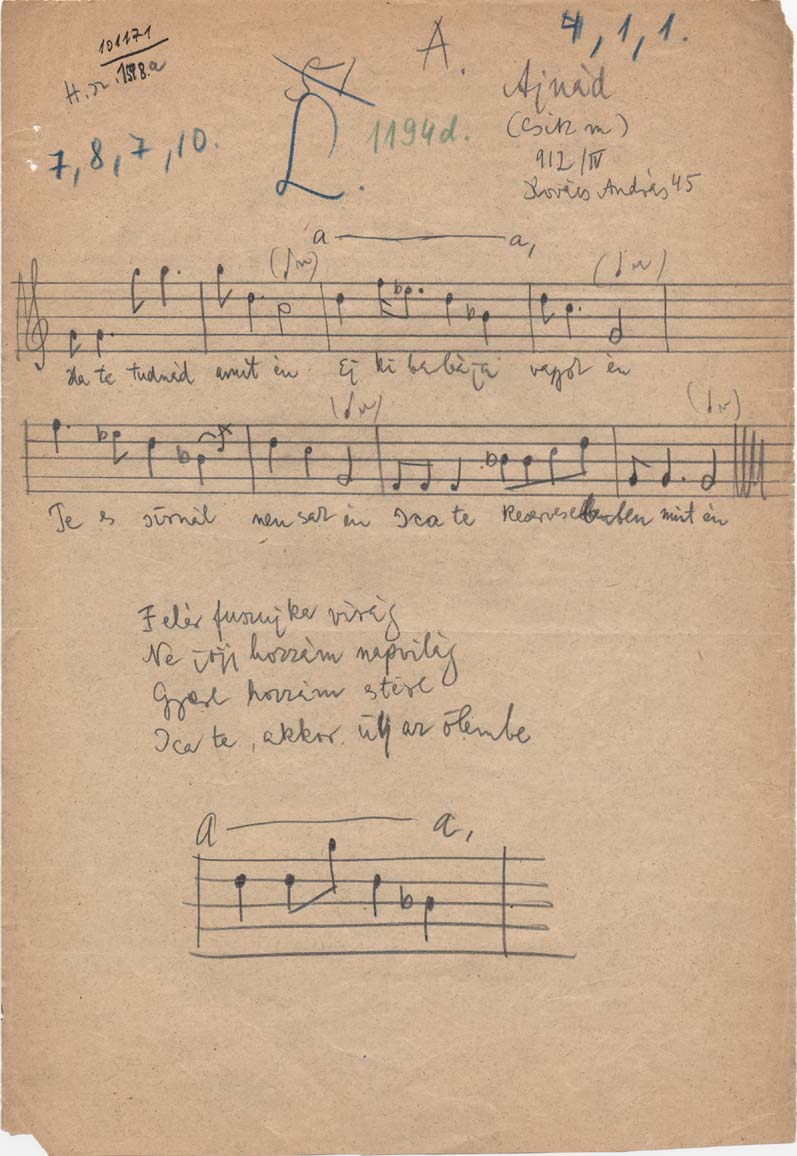 101171
H.sz. 1578.a
A.
4, 1, 1.
Ajnád
(Csik m)
912/IV
Kovács András 45
1194d.
7, 8, 7, 10.
L.
a — a,
Ha te tudnád amit én Ej ki babája vagyok én
Te es sirnál nem csak én Ica te keservesebben mint én
Felér fuszujka virág
Ne jöjj hozzám napvilág
Gyere hozzám estére
Ica te, akkor ülj az ölembe
A — a,